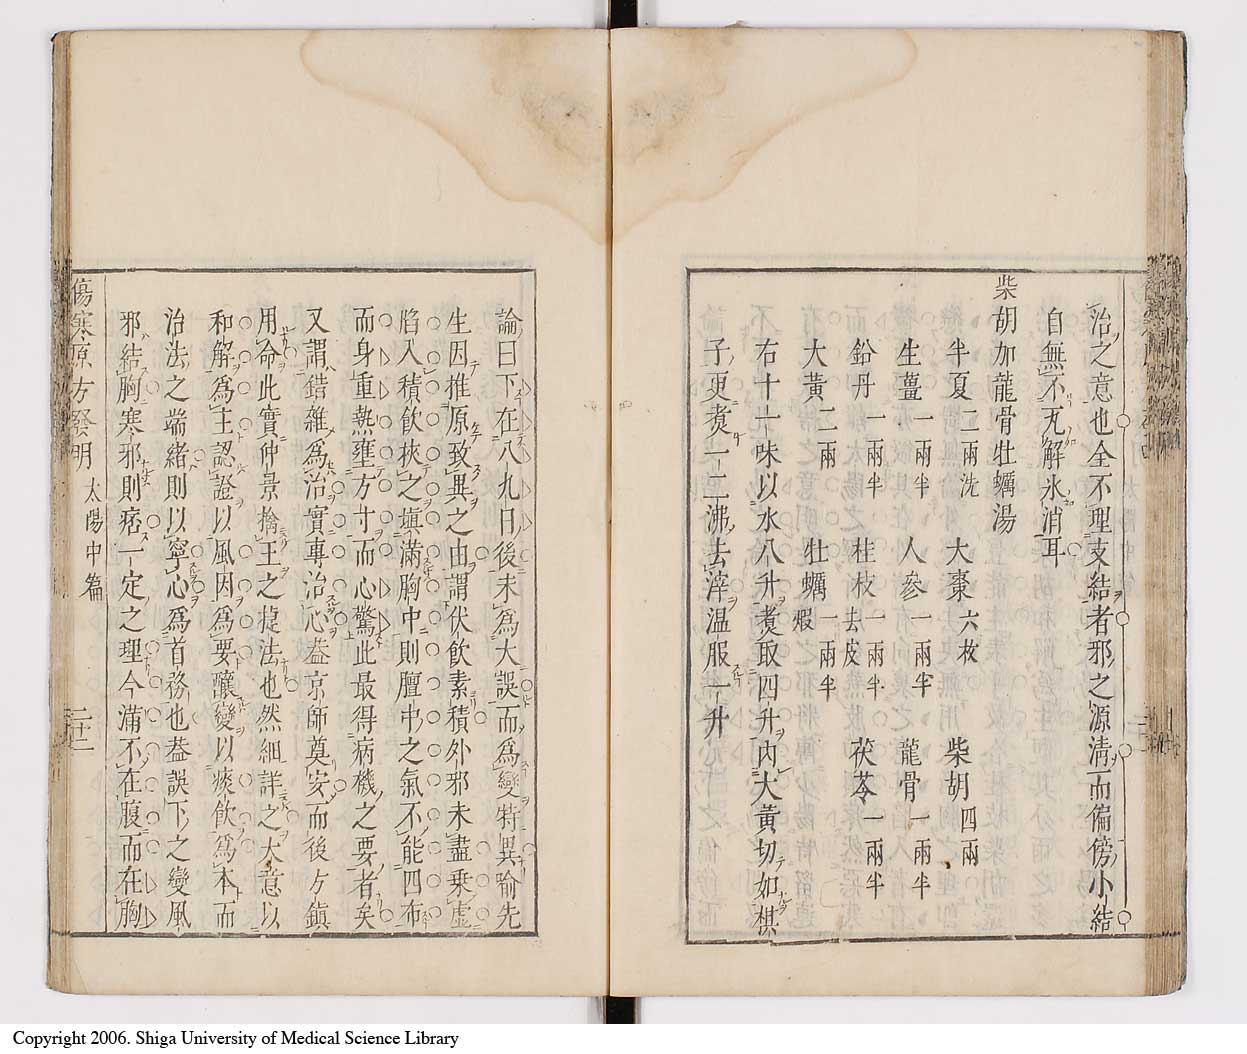 治之意也全不理支結者邪之源淸而偏傍小結
自無不冘解氷消耳
柴胡加龍骨牡蠣湯
半夏二兩洗 大棗六枚 柴胡四兩
生薑一兩半 人參一兩半 龍骨一兩半
鉛丹一兩半 桂枝去皮一兩半 茯苓一兩半
大黃二兩 牡蠣一兩半煆
右十一味以水八升煑取四升內大黃切如棋
子更煑一二沸去滓温服一升
論曰下在八九日後未爲大誤而爲變特異喻先
生因推原致異之由謂伏飲素積外邪未盡乘虛
陷入積飲挾之塡滿胸中則膻中之氣不能四布
而身重熱壅方寸而心驚此最得病機之要者矣
又謂錯雜爲治實專治心益京師奠安而後方鎭
用命此實仲景擒王之捷法也然細詳之大意以
和解爲主認證以風因爲要釀變以痰飲爲本而
治法之端緒則以寧心爲首務也葢誤下之變風
邪結胸寒邪則痞一定之理今滿不在腹而在胸
傷寒原方發明 太陽中篇 二十二
Copyright 2006. Shiga University of Medical Science Library